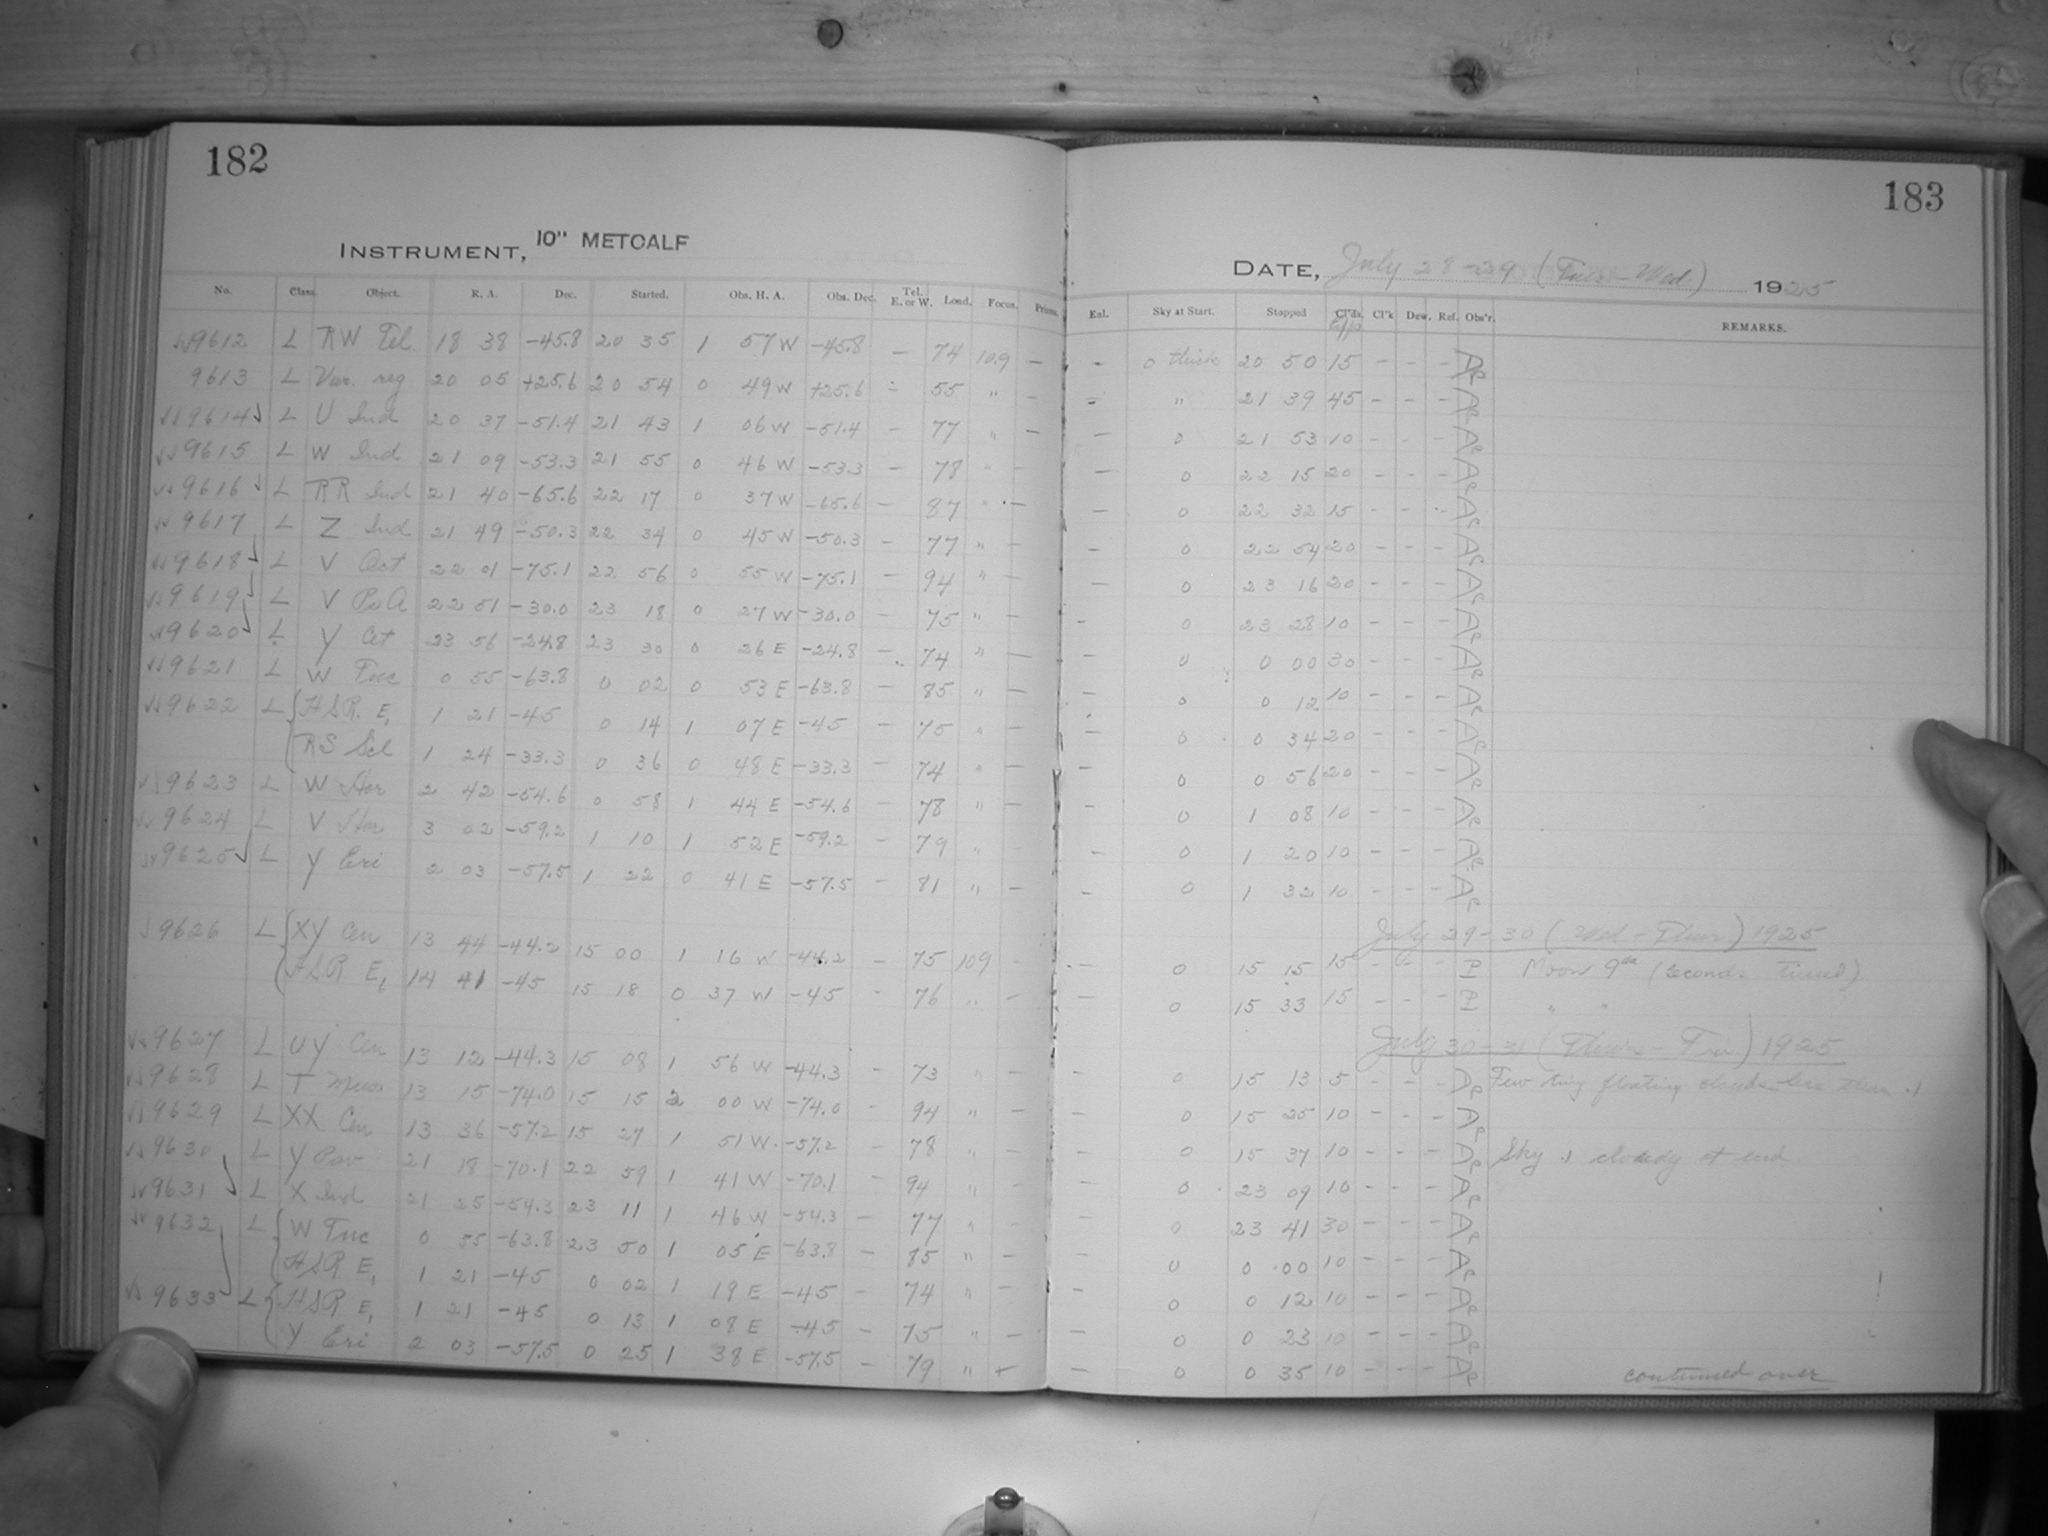 182
INSTRUMENT, 10" METCALF
No. Class. Object. R. A. Dec. Started. Obs. H. A. Obs. Dec. Tel. E. or W. Load. Focus. Prisms.
9612 L RW Tel. 18 38 -45.8 20 35 1 57 W -45.8 - 74 10.9 -
9613 L Var. reg 20 05 +25.6 20 54 0 49 W +25.6 - 55 " -
9614 L U Ind 20 37 -51.4 21 43 1 06 W -51.4 - 77 " -
9615 L W Ind 21 09 -53.3 21 55 0 46 W -53.3 - 78 " -
9616 L RR Ind 21 40 -65.6 22 17 0 37 W -65.6 - 87 " -
9617 L Z Ind 21 49 -50.3 22 34 0 45 W -50.3 - 77 " -
9618 L V Oct 22 01 -75.1 22 56 0 55 W -75.1 - 94 " -
9619 L V PsA 22 51 -30.0 23 18 0 27 W -30.0 - 75 " -
9620 L Y Cet 23 56 -24.8 23 30 0 26 E -24.8 - 74 " -
9621 L W Tuc 0 55 -63.8 0 02 0 53 E -63.8 - 85 " -
9622 L HSR. E, 1 21 -45 0 14 1 07 E -45 - 75 " -
RS Scl 1 24 -33.3 0 36 0 48 E -33.3 - 74 " -
9623 L W Hor 2 42 -54.6 0 58 1 44 E -54.6 - 78 " -
9624 L V Hor 3 02 -59.2 1 10 1 52 E -59.2 - 79 " -
9625 L Y Eri 2 03 -57.5 1 22 0 41 E -57.5 - 81 " -
9626 L XY Cen 13 44 -44.2 15 00 1 16 W -44.2 - 75 109 -
HSR E6 14 41 -45 15 18 0 37 W -45 - 76 " -
9627 L UY Cen 13 12 -44.3 15 08 1 56 W -44.3 - 73 " -
9628 L T Mus 13 15 -74.0 15 15 2 00 W -74.0 - 94 " -
9629 L XX Cen 13 36 -57.2 15 27 1 51 W -57.2 - 78 " -
9630 L Y Pav 21 18 -70.1 22 59 1 41 W -70.1 - 94 " -
9631 L X Ind 21 25 -54.3 23 11 1 46 W -54.3 - 77 " -
9632 L W Tuc 0 55 -63.8 23 50 1 05 E -63.8 - 85 " -
HSR E, 1 21 -45 0 02 1 19 E -45 - 74 " -
9633 L HSR E, 1 21 -45 0 13 1 08 E -45 - 75 " -
Y Eri 2 03 -57.5 0 25 1 38 E -57.5 - 79 " -
183
DATE, July 28-29 (Tues-Wed.) 1925
Enl. Sky at Start. Stopped Cl'ds. Cl'k Dew. Ref. Obs'r. REMARKS.
- 0 thick 20 50 15 - - -
- " 21 39 45 - - -
- 0 21 53 10 - - -
- 0 22 15 20 - - -
- 0 22 32 15 - - -
- 0 22 54 20 - - -
- 0 23 16 20 - - -
- 0 23 28 10 - - -
- 0 0 00 30 - - -
- 0 0 12 10 - - -
- 0 0 34 20 - - -
- 0 0 56 20 - - -
- 0 1 08 10 - - -
- 0 1 20 10 - - -
- 0 1 32 10 - - -
July 29-30 (Wed-Thur) 1925
- 0 15 15 15 - - - Moon 9da (seconds timed)
- 0 15 33 15 - - - " "
July 30-31 (Thur-Fri) 1925
- 0 15 13 5 - - - Few tiny floating clouds less than .1
- 0 15 25 10 - - -
- 0 15 37 10 - - - Sky .1 cloudy at end
- 0 23 09 10 - - -
- 0 23 41 30 - - -
- 0 0 00 10 - - -
- 0 0 12 10 - - -
- 0 0 23 10 - - -
- 0 0 35 10 - - -
continued over